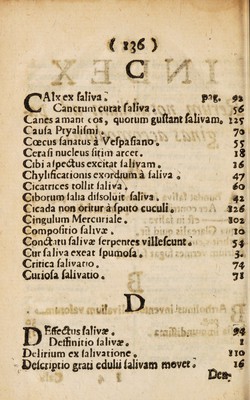 (136)
C
CAlx ex saliva. pag. 92
Cancrum curat saliva. 56
Canes amant eos, quorum gustant salivam. 125
Causa Ptyalismi. 70
Cœcus sanatus à Vespasiano. 55
Cerasi nucleus sitim arcet. 18
Cibi aspectus excitat salivam. 16
Chylificationis exordium à saliva. 47
Cicatrices tollit saliva. 60
Ciborum salia dissoluit saliva. 42
Cicada non oritur à sputo cuculi. 126
Cingulum Mercuriale. 102
Compositio salivæ. 10
Conctitu salivæ serpentes villescunt. 54
Cur saliva exeat spumosa. 3.
Critica salivatio. 74
Curiosa salivatio. 71
D
DEffectus salivæ. 94
Deffinitio salivæ. 1
Delirium ex salivatione. 110
Descriptio grati edulii salivam movet. 16
Den-